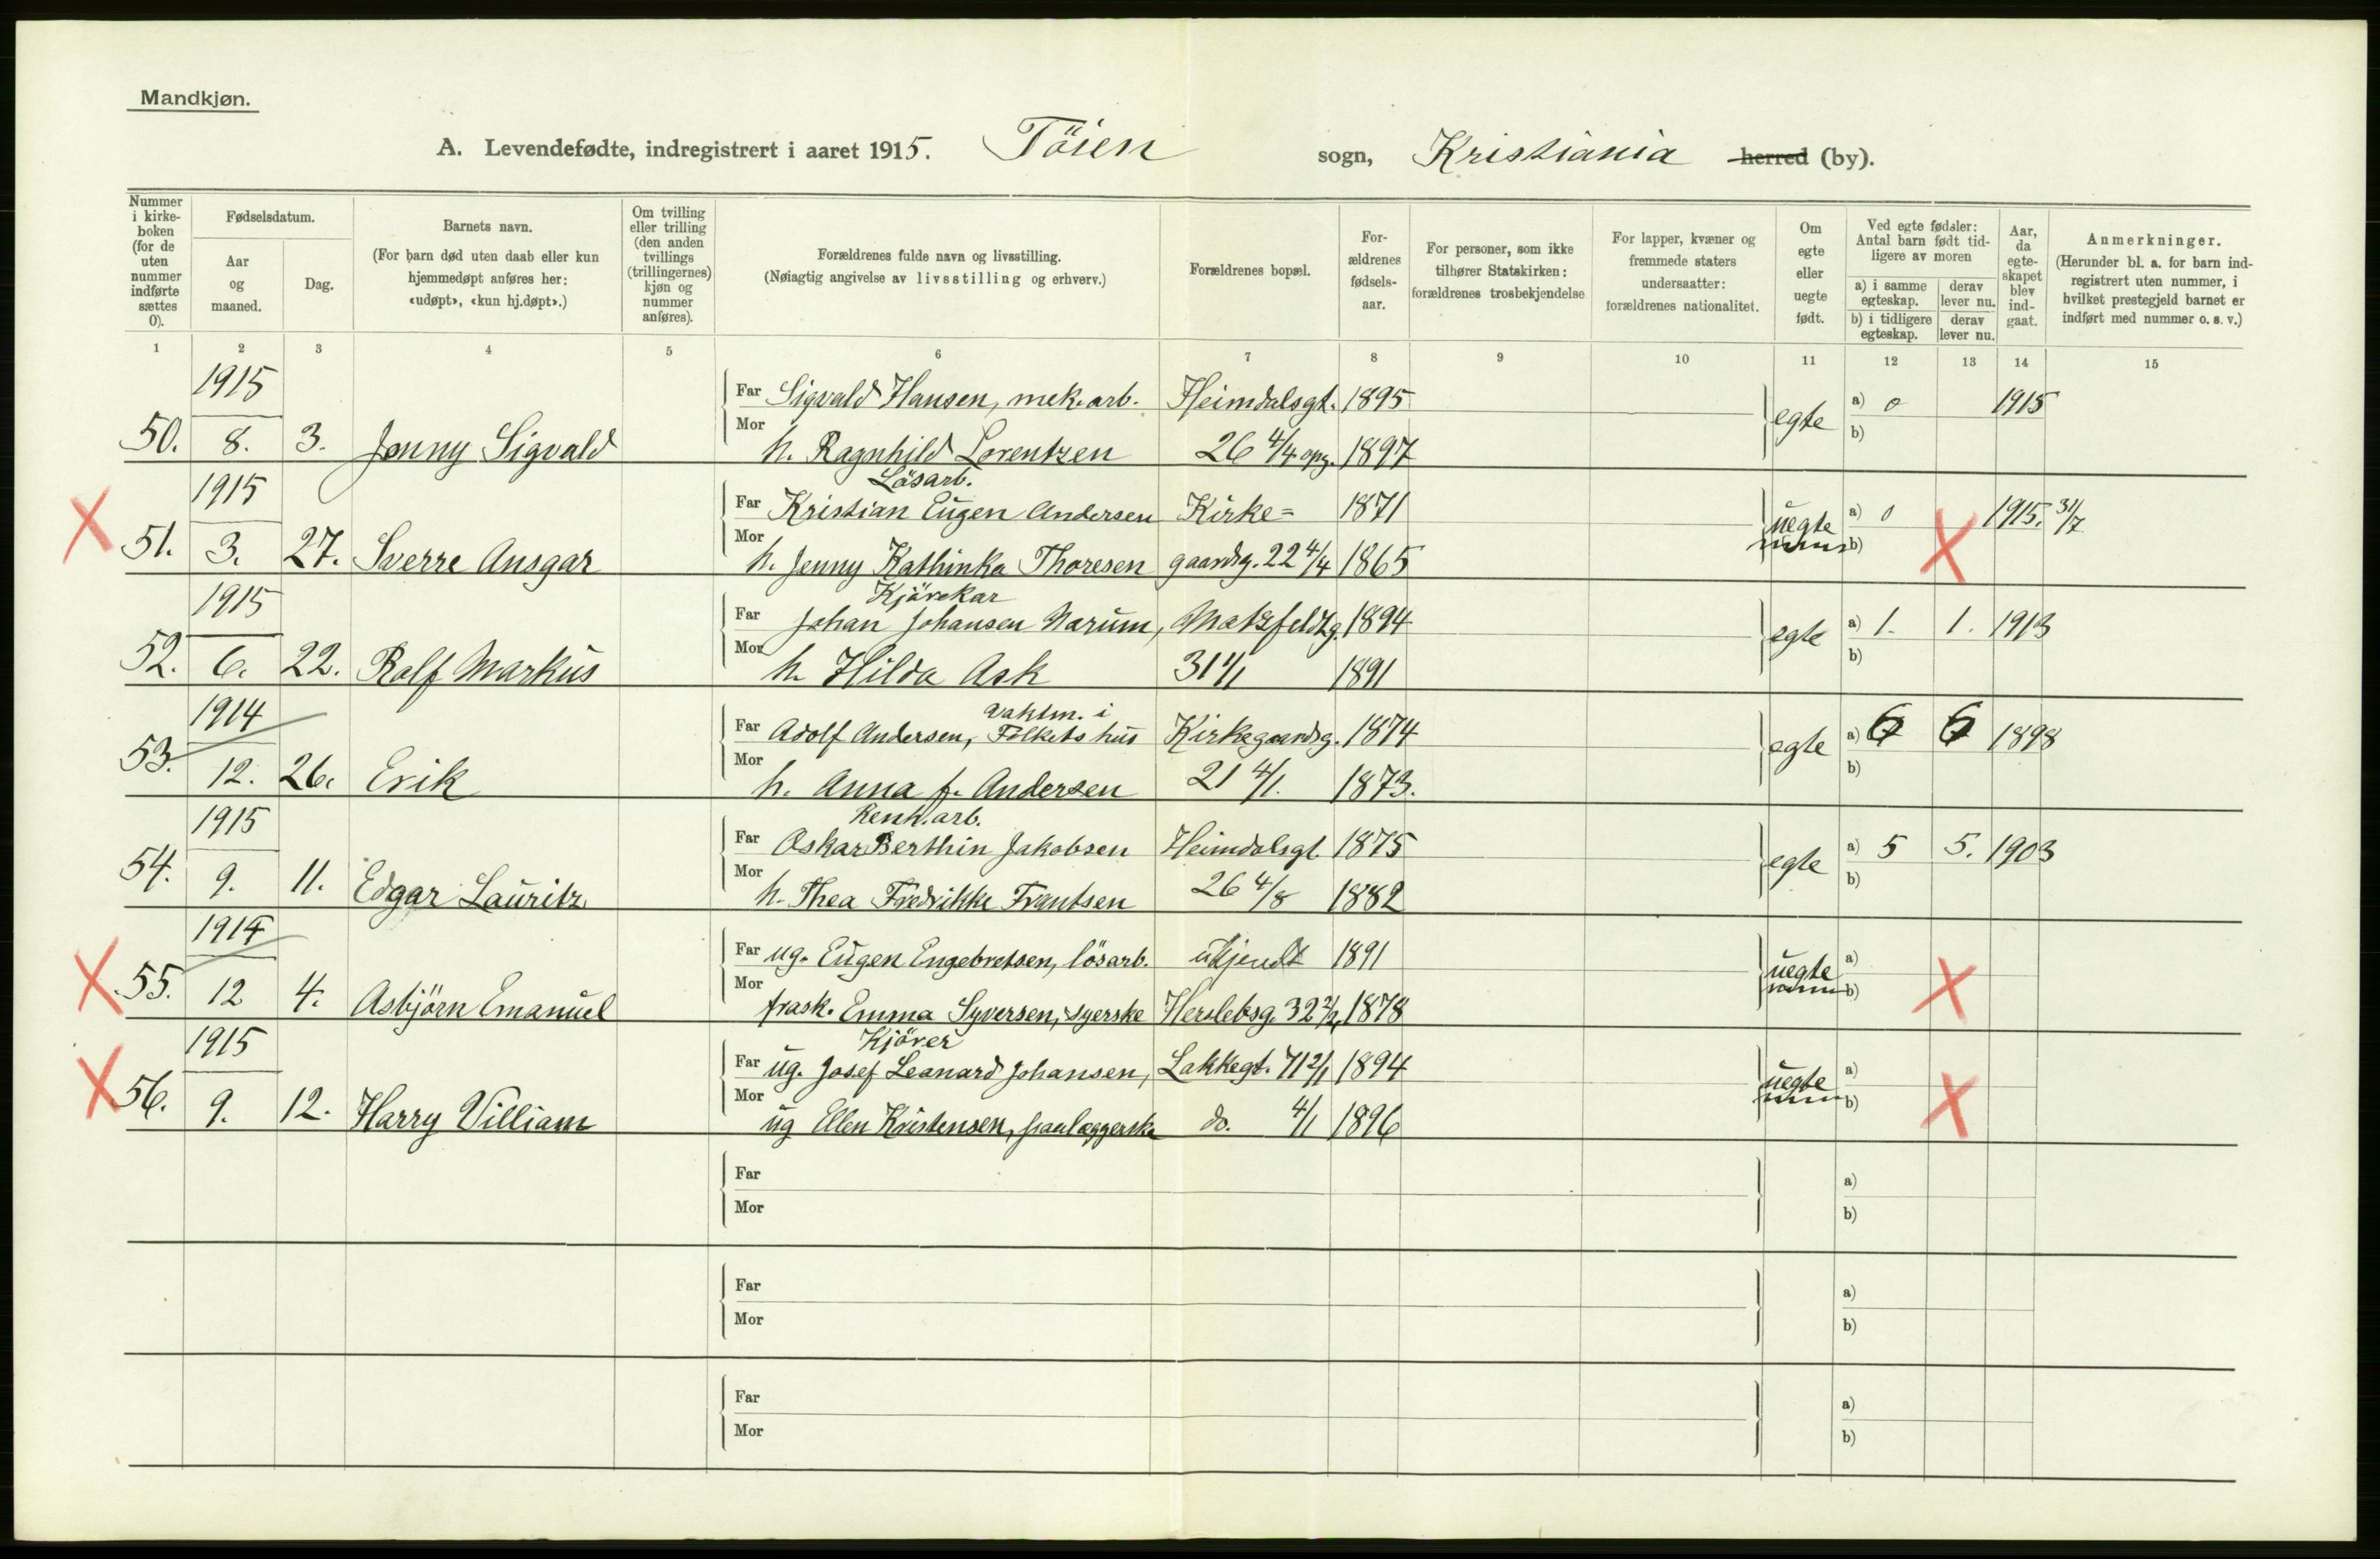 Mandkjøn.
A. Levendefødte, indregistrert i aaret 1915. Töien sogn, Kristiania herred (by).
Nummer i kirke-boken (for de uten nummer indførte sættes 0).
Fødselsdatum.
Aar og maaned.
Dag.
Barnets navn.
(For barn død uten daab eller kun hjemmedøpt anføres her: «udøpt», «kun hj.døpt».)
Om tvilling eller trilling (den anden tvillings (trillingernes) kjøn og nummer anføres).
Forældrenes fulde navn og livsstilling.
(Nøiagtig angivelse av livsstilling og erhverv.)
Forældrenes bopæl.
For-ældrenes fødsels-aar.
For personer, som ikke tilhører Statskirken: forældrenes trosbekjendelse
For lapper, kvæner og fremmede staters undersaatter: forældrenes nationalitet.
Om egte eller uegte født.
Ved egte fødsler: Antal barn født tid-ligere av moren
a) i samme egteskap. derav lever nu.
b) i tidligere egteskap. derav lever nu.
Aar, da egte-skapet blev ind-gaat.
Anmerkninger.
(Herunder bl. a. for barn ind-registrert uten nummer, i hvilket prestegjeld barnet er indført med nummer o. s. v.)
1 2 3 4 5 6 7 8 9 10 11 12 13 14 15
1915 Far Sigvald Hansen, mek. arb. Heimdalsgt. 1895 egte a) 0 1915
50. 8. 3. Jenny Sigvald Mor h. Ragnhild Lorentzen 26 4/4 opg. 1897 b)
Lösarb.
1915 Far Kristian Eugen Andersen Kirke= 1871 uegte a) 0 1915. 31/7
51. 3. 27. Sverre Ansgar Mor h. Jenny Kathinka Thoresen gaardsg. 22 4/4 1865 b)
Kjörekar
1915 Far Johan Johansen Narum, Motzfeldtg. 1894 egte a) 1. 1. 1913
52. 6. 22. Rolf Markus Mor h. Hilda Ask 31 1/1 1891 b)
Vaktm. i
1914 Far Adolf Andersen, Folkets hus Kirkegaardsg. 1874 egte a) 6 6 1898
53. 12. 26. Erik Mor h. Anna f. Andersen 21 4/1. 1873. b)
Renh.arb.
1915 Far Oskar Berthin Jakobsen Heimdalsgt. 1875 egte a) 5 5. 1903
54. 9. 11. Edgar Lauritz Mor h. Thea Fredrikke Frantsen 26 4/8 1882 b)
1914 Far ug. Eugen Engebretsen, lösarb. ukjendt 1891 uegte a)
55. 12 4. Asbjörn Emanuel Mor frask. Emma Syversen, syerske Herslebsg. 32 2/2, 1878 b)
Kjörer
1915 Far ug. Josef Leonard Johansen, Lakkegt. 71 2/1 1894 uegte a)
56. 9. 12. Harry Villiam Mor ug Ellen Kristensen, paalæggerske do. 4/1 1896 b)
Far a)
Mor b)
Far a)
Mor b)
Far a)
Mor b)